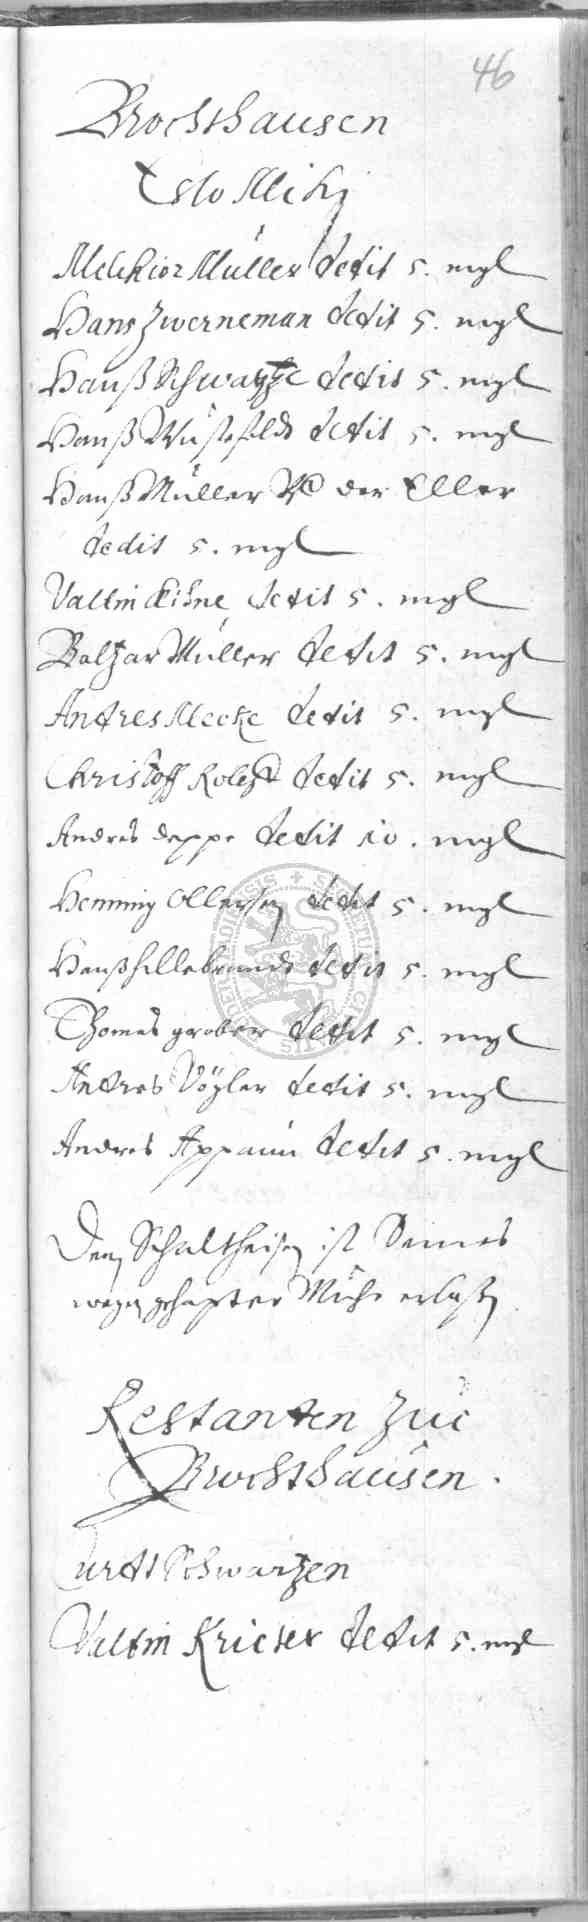 46
Brochthausen
Esto Michi
Melchior Müller dedit 5. mgl
Hans Zwerneman dedit 5. mgl
Hanß Schwartze dedit 5. mgl
Hanß Wüstefeldt dedit 5. mgl
Hanß Müller der Eller
dedit 5. mgl
Valtin Kihne dedit 5. mgl
Baltzar Müller dedit 5. mgl
Andres Mecke dedit 5. mgl
Christoff dedit 5. mgl
Andres Deppe dedit 10. mgl
Henning dedit 5. mgl
Hanß Hillebrandt dedit 5. mgl
Thomas grober dedit 5. mgl
Andres Vögler dedit 5. mgl
Andres Appaun dedit 5. mgl
Den Schultheisen ist Seines
wegen gehapter Mühe erlaßen
Restanten Zue
Brochthausen.
Curdt Schwartzen
Valtin Krieter dedit 5. mgl